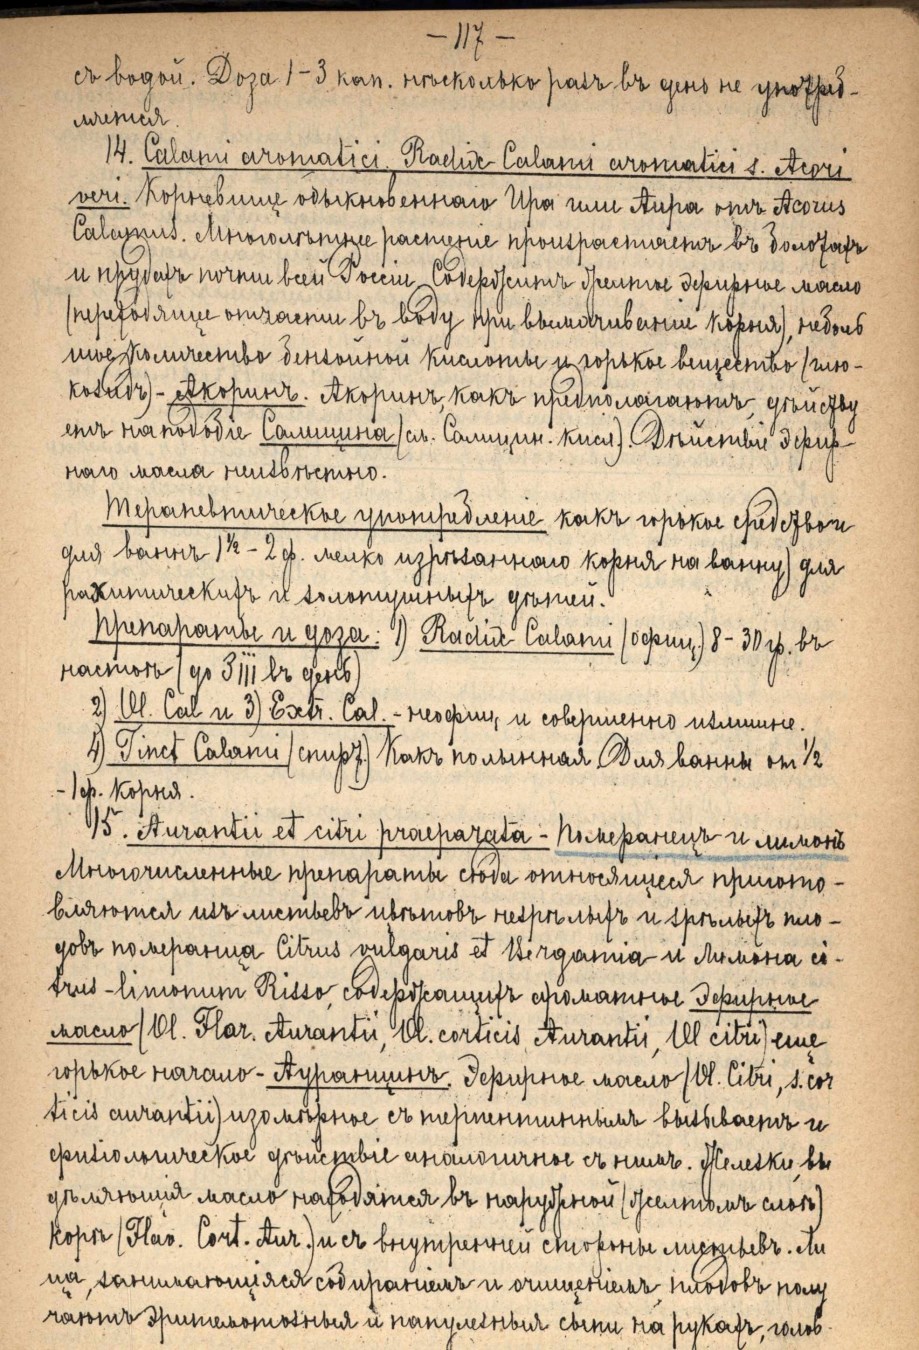 - 117 -
съ водой. Доза 1-3 кап. нѣсколько разъ въ день не употреб-
ляется.
14. Calami aromatici. Radix Calami aromatici s. Acori
veri. Корневище обыкновеннаго Ира или Аира отъ Acorus
Calamus. Многолѣтнее растеніе произрастаетъ въ болотахъ
и прудахъ почти всей Россіи. Содержитъ желтое эфирное масло
(переходящее отчасти въ воду при вымачиваніи корня), неболь
шое количество бензойной кислоты и горькое вещество (глю-
козидъ) - Акоринъ. Акоринъ, какъ предполагаютъ, дѣйству
етъ на подобіе Салицина (см. Салицин. кисл.). Дѣйствіе эфир-
наго масла неизвѣстно.
Терапевтическое употребленіе какъ горькое средство и
для ваннъ 1½ - 2 ф. мелко изрѣзаннаго корня на ванну) для
рахитическихъ и золотушныхъ дѣтей.
Препараты и доза: 1) Radix Calami (офиц.) 8-30 гр. въ
настоѣ (до ʒiii въ день)
2) Ol. Cal и 3) Extr. Cal. - неофиц. и совершенно излишне.
4) Tinct Calami (спирт.) Какъ полынная. Для ванны от ½
- 1 ф. корня.
15. Aurantii et citri praeparata - Померанецъ и лимонъ
Многочисленные препараты сюда относящіеся пригото-
вляются изъ листьевъ цвѣтовъ незрѣлыхъ и зрѣлыхъ пло-
довъ померанца Citrus vulgaris et Bergamia и Лимона ci-
trus-limonum Risso, содержащихъ ароматное эфирное
масло (Ol. Flor. Aurantii, Ol. corticis Aurantii, Ol citri) еще
горькое начало - Ауранцинъ. Эфирное масло (Ol. Citri, s. cor
ticis aurantii) изомѣрное съ терпентиннымъ вызываетъ и
физіологическое дѣйствіе аналогичное съ нимъ. Железки, вы
дѣляющія масло находятся въ наружной (желтомъ слоѣ)
корѣ (Flav. Cort. Aur.) и съ внутренней стороны листьевъ. Ли
ца, занимающіяся собираніемъ и очищеніемъ плодовъ полу
чаютъ эритематозныя и папулезныя сыпи на рукахъ, голов-